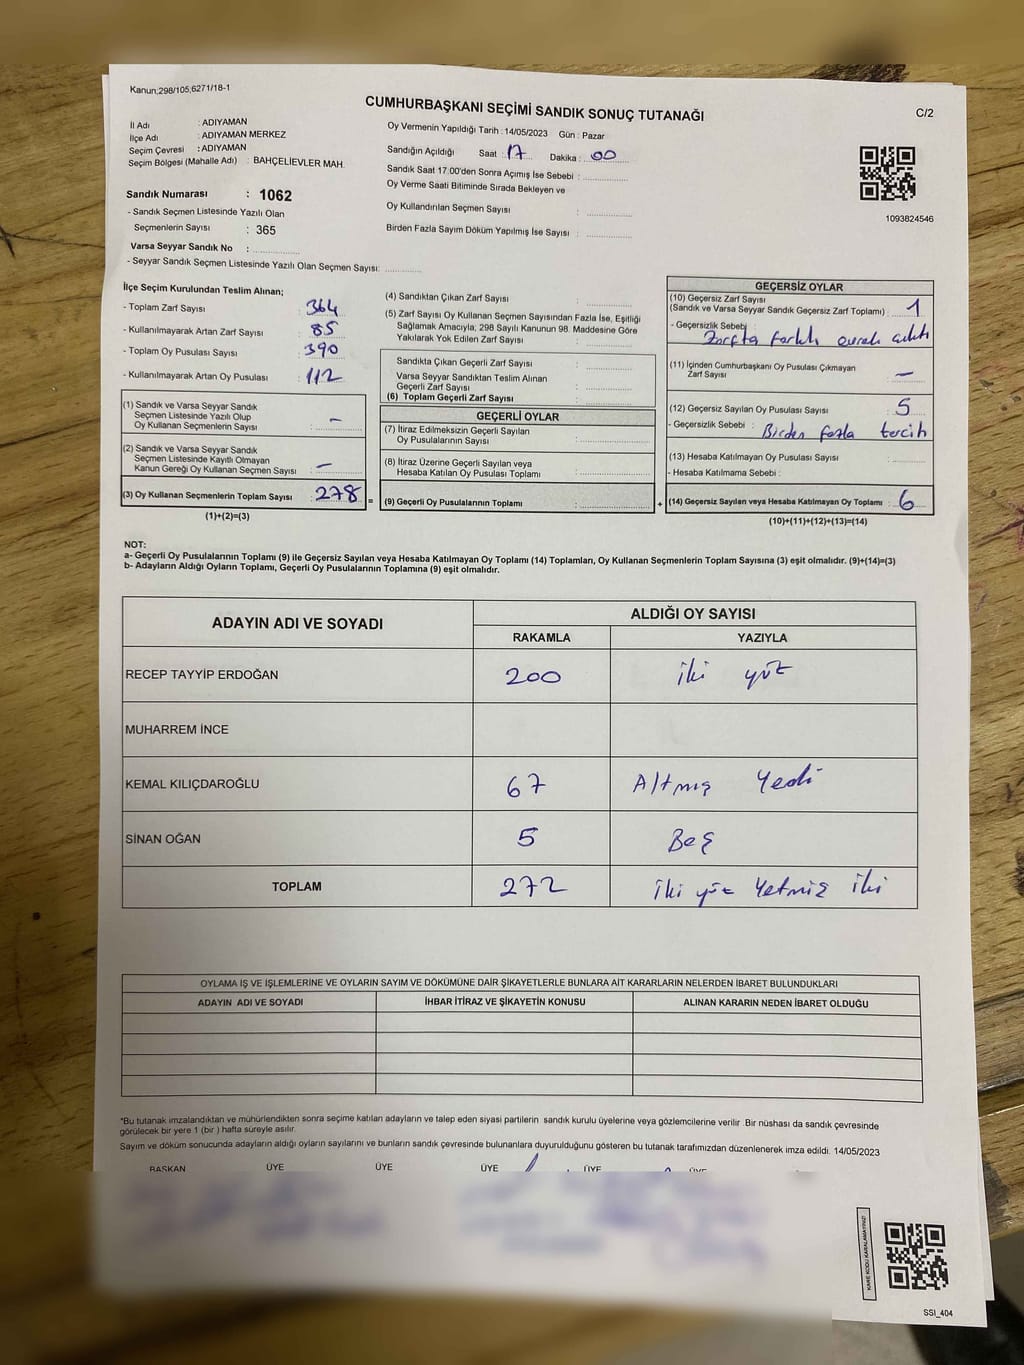 Kanun;298/105,6271/18-1
CUMHURBAŞKANI SEÇİMİ SANDIK SONUÇ TUTANAĞI
C/2
İl Adı : ADIYAMAN
İlçe Adı : ADIYAMAN MERKEZ
Seçim Çevresi : ADIYAMAN
Seçim Bölgesi (Mahalle Adı) : BAHÇELİEVLER MAH.
Sandık Numarası : 1062
- Sandık Seçmen Listesinde Yazılı Olan
Seçmenlerin Sayısı : 365
Varsa Seyyar Sandık No :
- Seyyar Sandık Seçmen Listesinde Yazılı Olan Seçmen Sayısı:
Oy Vermenin Yapıldığı Tarih : 14/05/2023 Gün : Pazar
Sandığın Açıldığı Saat : 17 Dakika : 00
Sandık Saat 17:00'den Sonra Açımış İse Sebebi :
Oy Verme Saati Bitiminde Sırada Bekleyen ve
Oy Kullandırılan Seçmen Sayısı :
Birden Fazla Sayım Döküm Yapılmış İse Sayısı :
1093824546
İlçe Seçim Kurulundan Teslim Alınan;
- Toplam Zarf Sayısı : 364
- Kullanılmayarak Artan Zarf Sayısı : 85
- Toplam Oy Pusulası Sayısı : 390
- Kullanılmayarak Artan Oy Pusulası : 112
(1) Sandık ve Varsa Seyyar Sandık
Seçmen Listesinde Yazılı Olup
Oy Kullanan Seçmenlerin Sayısı : –
(2) Sandık ve Varsa Seyyar Sandık
Seçmen Listesinde Kayıtlı Olmayan
Kanun Gereği Oy Kullanan Seçmen Sayısı : –
(3) Oy Kullanan Seçmenlerin Toplam Sayısı : 278 =
(1)+(2)=(3)
(4) Sandıktan Çıkan Zarf Sayısı :
(5) Zarf Sayısı Oy Kullanan Seçmen Sayısından Fazla İse, Eşitliği
Sağlamak Amacıyla, 298 Sayılı Kanunun 98. Maddesine Göre
Yakılarak Yok Edilen Zarf Sayısı :
Sandıkta Çıkan Geçerli Zarf Sayısı :
Varsa Seyyar Sandıktan Teslim Alınan
Geçerli Zarf Sayısı :
(6) Toplam Geçerli Zarf Sayısı :
GEÇERLİ OYLAR
(7) İtiraz Edilmeksizin Geçerli Sayılan
Oy Pusulalarının Sayısı :
(8) İtiraz Üzerine Geçerli Sayılan veya
Hesaba Katılan Oy Pusulası Toplamı :
(9) Geçerli Oy Pusulalarının Toplamı : +
GEÇERSİZ OYLAR
(10) Geçersiz Zarf Sayısı
(Sandık ve Varsa Seyyar Sandık Geçersiz Zarf Toplamı) : 1
- Geçersizlik Sebebi :
Zarfta farklı evrak çıktı
(11) İçinden Cumhurbaşkanı Oy Pusulası Çıkmayan
Zarf Sayısı : –
(12) Geçersiz Sayılan Oy Pusulası Sayısı : 5
- Geçersizlik Sebebi : Birden fazla tercih
(13) Hesaba Katılmayan Oy Pusulası Sayısı :
- Hesaba Katılmama Sebebi :
(14) Geçersiz Sayılan veya Hesaba Katılmayan Oy Toplamı : 6
(10)+(11)+(12)+(13)=(14)
NOT:
a- Geçerli Oy Pusulalarının Toplamı (9) ile Geçersiz Sayılan veya Hesaba Katılmayan Oy Toplamı (14) Toplamları, Oy Kullanan Seçmenlerin Toplam Sayısına (3) eşit olmalıdır. (9)+(14)=(3)
b- Adayların Aldığı Oyların Toplamı, Geçerli Oy Pusulalarının Toplamına (9) eşit olmalıdır.
ADAYIN ADI VE SOYADI
ALDIĞI OY SAYISI
RAKAMLA YAZIYLA
RECEP TAYYİP ERDOĞAN 200 iki yüz
MUHARREM İNCE
KEMAL KILIÇDAROĞLU 67 Altmış Yedi
SİNAN OĞAN 5 Beş
TOPLAM 272 iki yüz Yetmiş iki
OYLAMA İŞ VE İŞLEMLERİNE VE OYLARIN SAYIM VE DÖKÜMÜNE DAİR ŞİKAYETLERLE BUNLARA AİT KARARLARIN NELERDEN İBARET BULUNDUKLARI
ADAYIN ADI VE SOYADI İHBAR İTİRAZ VE ŞİKAYETİN KONUSU ALINAN KARARIN NEDEN İBARET OLDUĞU
*Bu tutanak imzalandıktan ve mühürlendikten sonra seçime katılan adayların ve talep eden siyasi partilerin sandık kurulu üyelerine veya gözlemcilerine verilir. Bir nüshası da sandık çevresinde
görülecek bir yere 1 (bir ) hafta süreyle asılır.
Sayım ve döküm sonucunda adayların aldığı oyların sayılarını ve bunların sandık çevresinde bulunanlara duyurulduğunu gösteren bu tutanak tarafımızdan düzenlenerek imza edildi. 14/05/2023
BAŞKAN ÜYE ÜYE ÜYE ÜYE ÜYE
KARE KODU KARALAMAYINIZ!
SSI_404